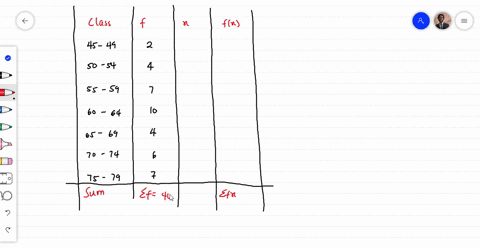 Class f x f(x)
45 - 49 2
50 - 54 4
55 - 59 7
60 - 64 10
65 - 69 4
70 - 74 6
75 - 79 7
Sum Σf = 40 Σfx